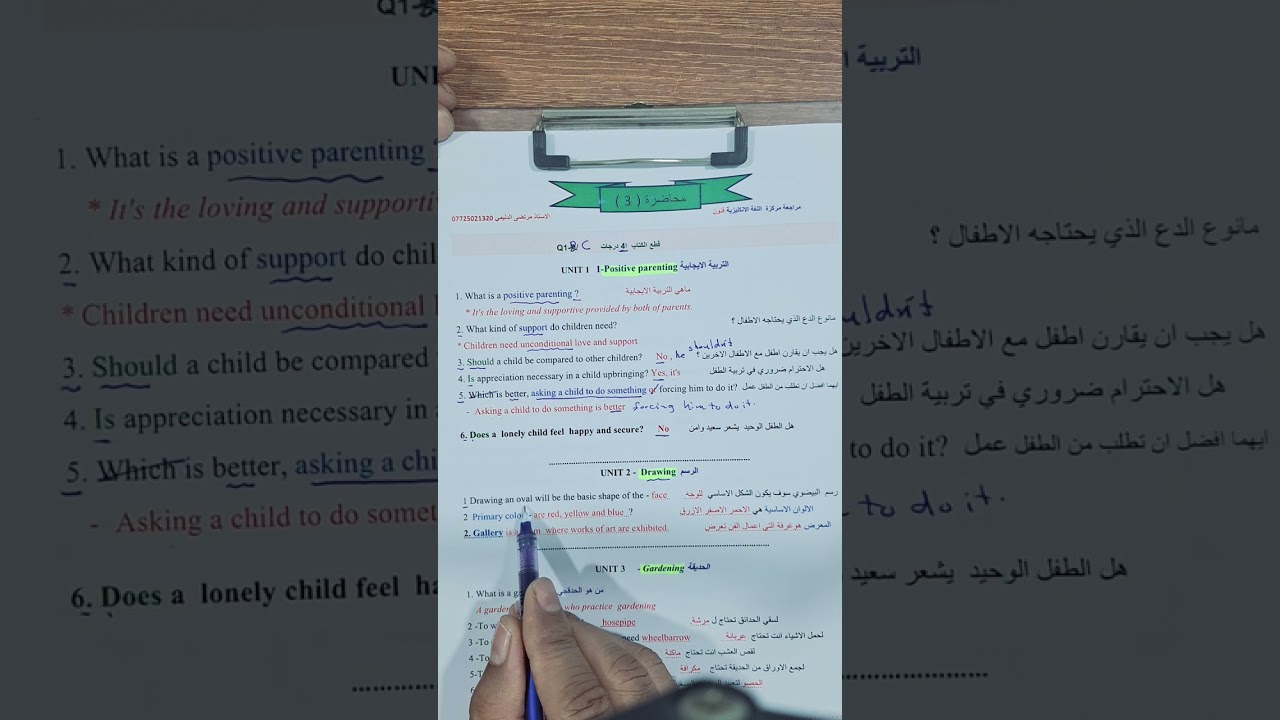 محاضرة ( 3 )
مراجعة مركزة اللغة الانكليزية
الاستاذ مرتضى 07725021320
Q1- C قطع الكتاب 4 درجات
UNIT 1 1-Positive parenting التربية الايجابية
1. What is a positive parenting ? ماهي التربية الايجابية
* It's the loving and supportive provided by both of parents.
2. What kind of support do children need? مانوع الدع الذي يحتاجه الاطفال ؟
* Children need unconditional love and support
3. Should a child be compared to other children? No , he shouldn't هل يجب ان يقارن اطفل مع الاطفال الاخرين ؟
4. Is appreciation necessary in a child upbringing? Yes, it's هل الاحترام ضروري في تربية الطفل
5. Which is better, asking a child to do something or forcing him to do it? ايهما افضل ان تطلب من الطفل عمل
- Asking a child to do something is better forcing him to do it.
6. Does a lonely child feel happy and secure? No هل الطفل الوحيد يشعر سعيد وامن
UNIT 2 - Drawing الرسم
1 Drawing an oval will be the basic shape of the - face رسم البيضوي سوف يكون الشكل الاساسي للوجه
2 Primary color - are red, yellow and blue ? الالوان الاساسية هي الاحمر الاصفر الازرق
2. Gallery is a where works of art are exhibited. المعرض هوغرفة التي اعمال الفن تعرض
UNIT 3 - Gardening الحديقة
1. What is a من هو الحدقجي
A who practice gardening
2 -To hosepipe لسقي الحدائق تحتاج ل مرشة
3 -To need wheelbarrow لحمل الاشياء انت تحتاج عربانة
4 -To لقص العشب انت تحتاج ماكنة
5-T لجمع الاوراق من الحديقة تحتاج مكرافة